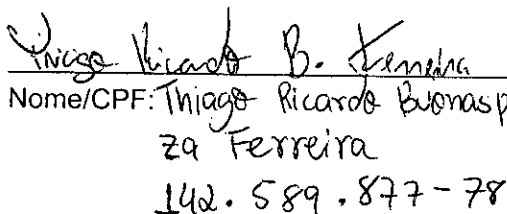 Thiago Ricardo B. Ferreira
Nome/CPF: Thiago Ricardo Buonasp
za Ferreira
142.589.877-78